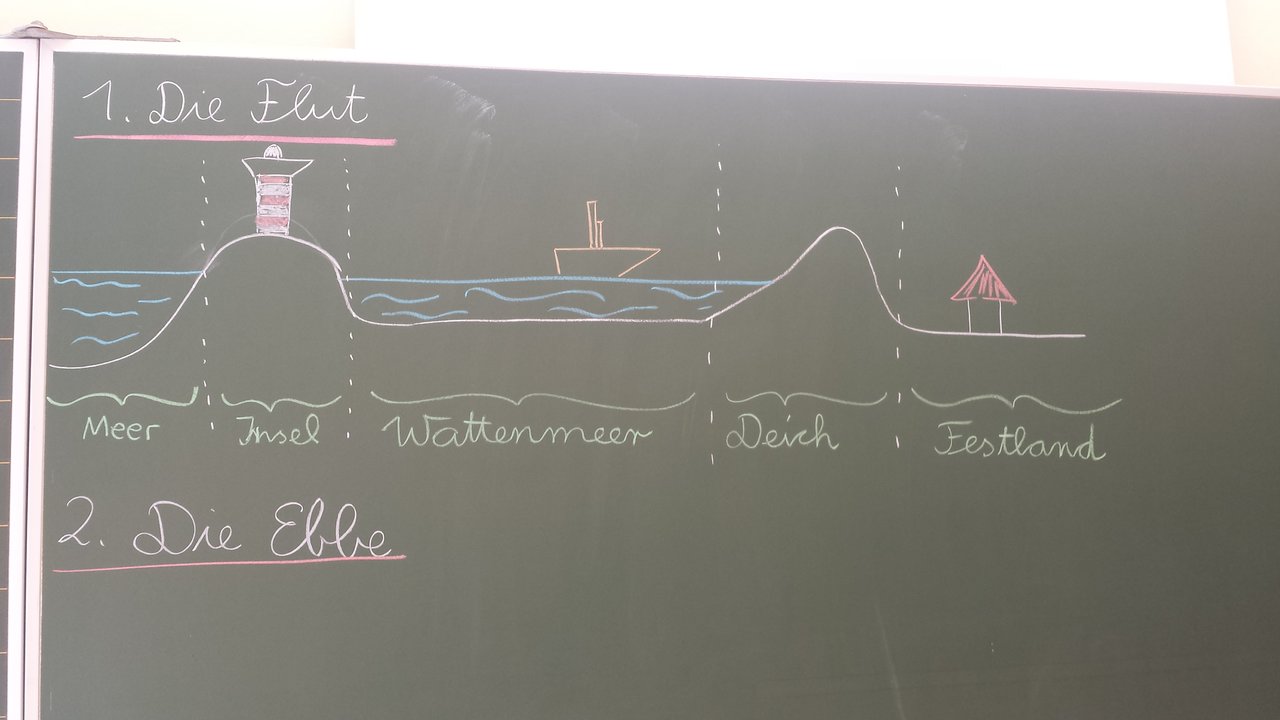 1. Die Flut
Meer Insel Wattenmeer Deich Festland
2. Die Ebbe